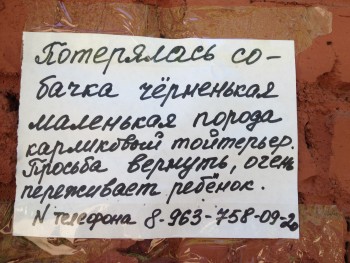 Потерялась со-
бачка чёрненькая
маленькая порода
карликовый тойтерьер.
Просьба вернуть, очень
переживает ребёнок.
N телефона 8-963-758-09-20